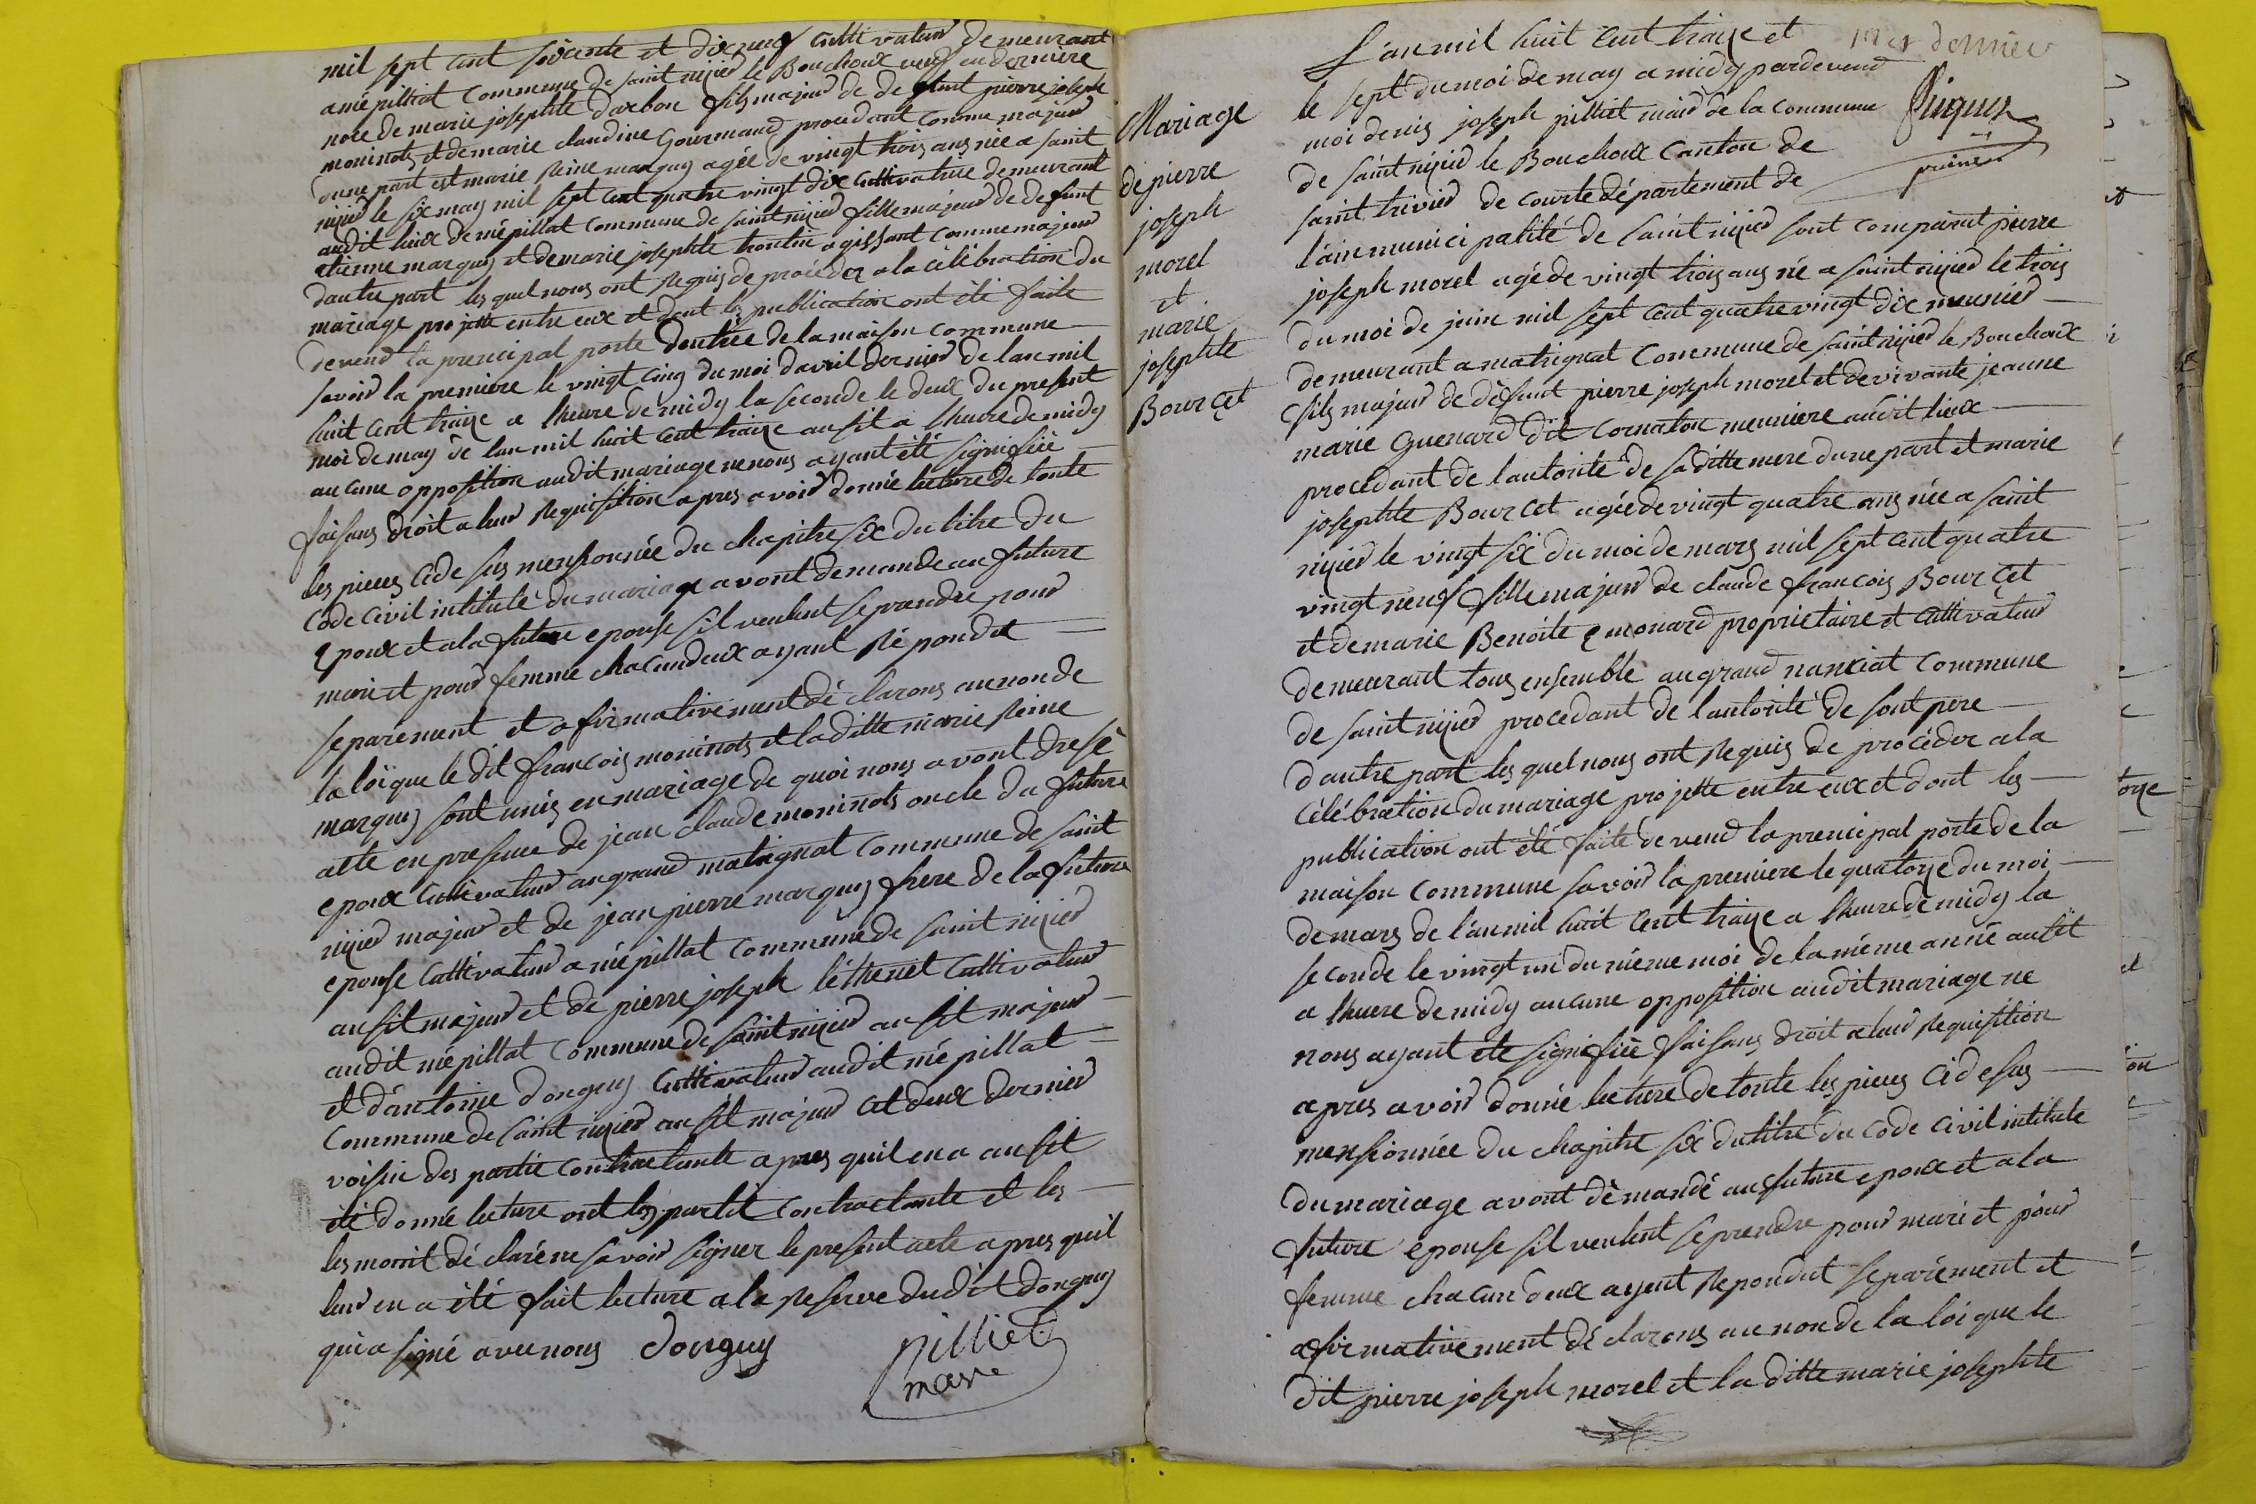 mil sept cent soixente et dix neuf cultivateur demeurant
a mépilliat commune de saint nizier le Bouchoux veuf en dernière
noce de marie josephte darbon fils majeur de defunt pierre joseph
moninots et de marie claudine Gourmand procedant comme majeur
dune part et marie Reine marguy agée de vingt trois ans née a saint
nizier le six may mil sept cent quatre vingt dix cultivatrice demeurant
audit lieux de mépillat commune de saint nizier fille majeur de defunt
etienne marguy et de marie josephte trontin agissant comme majeur
dautre part les quel nous ont Requis de procéder a la célébration du
mariage projetté entre eux et dont les publication ont été faite
devend la prencipal porte dentrée de la maison commune
savoir la premiere le vingt cinq du moi davril dernier de lan mil
huit cent traize a lheure de midy la seconde le deux du present
moi de may de lan mil huit cent traize ausit a lheure de midy
aucune opposition audit mariage ne nous ayant été signifiée
faisans droit a leur Requisition apres avoir donnée lecture de toute
les pieces cide sus mensionnée du chapitre six du titre du
code civil intitulé du mariage avont demande au future
epoux et a la future epouse sil veulent se prendre pour
mari et pour femme chacun deux ayant Répondut
separement et afirmativement déclarons au non de
la loi que le dit francois moninots et la ditte marie Reine
marguy sont unis en mariage de quoi nous avont dresé
acte en presence de jean claude moninots oncle du future
epoux cultivateur au grand matrignat commune de saint
nizier majeur et de jean pierre marguy frere de la future
epouse cultivateur a mépillat commune de saint nizier
ausit majeur et de pierre joseph léthenet cultivateur
audit mépillat commune de saint nizier ausit majeur
et dantoine donguy cultivateur audit mépillat
commune de saint nizier ausit majeur cet deux dernier
voisin des partie contractante apres quil en a ausit
été donné lecture ont les partit contractante et les
les moint déclaré ne savoir signer le present acte apres quil
leur en a été fait lecture a la Reserve dudit donguy
qui a signé avec nous donguy
pilliet
mare
Mariage
de pierre
joseph
morel
et
marie
josephte
Bourcet
L'an mil huit cent traize et
le sept du moi de may a midy pardevend
moi denis joseph pilliet maire de la commune
de saint nizier le Bouchoux canton de
saint trivier de courte département de
lain municipalité de saint nizier sont comparut pierre
joseph morel agé de vingt trois ans né a saint nizier le trois
du moi de juin mil sept cent quatre vingt dix meunier
demeurant a matrignat commune de saint nizier le Bouchoux
fils majeur de défunt pierre joseph morel et de vivante jeanne
marie Guenard dit cornaton meuniere audit lieux
procédant de lautorité de sa ditte mere dune part et marie
josephte Bourcet agée de vingt quatre ans née a saint
nizier le vingt six du moi de mars mil sept cent quatre
vingt neuf fille majeur de claude francois Bourcet
et de marie Benoite emonard proprietaire et cultivateur
demeurant tous ensemble au grand nanciat commune
de saint nizier procedant de lautorité de sont pere
dautre part les quel nous ont Requis de procéder a la
célébration du mariage projetté entre eux et dont les
publication ont été faite devend la prencipal porte de la
maison commune savoir la premiere le quatorze du moi
de mars de lan mil huit cent traize a lheure de midy la
seconde le vingt un du méme moi de la méme année ausit
a lheure de midy aucune opposition audit mariage ne
nous ayant été signifiée faisans droit a leur Requisition
apres avoir donnée lecture de toute les pieces cidesus
mensionnée du chapitre six du titre du code civil intitulé
du mariage avont démandé au future epoux et a la
future epouse sil veulent se prendre pour mari et pour
femme chacun deux ayent Repondut separément et
afirmativement déclarons au non de la loi que le
dit pierre joseph morel et la ditte marie josephte